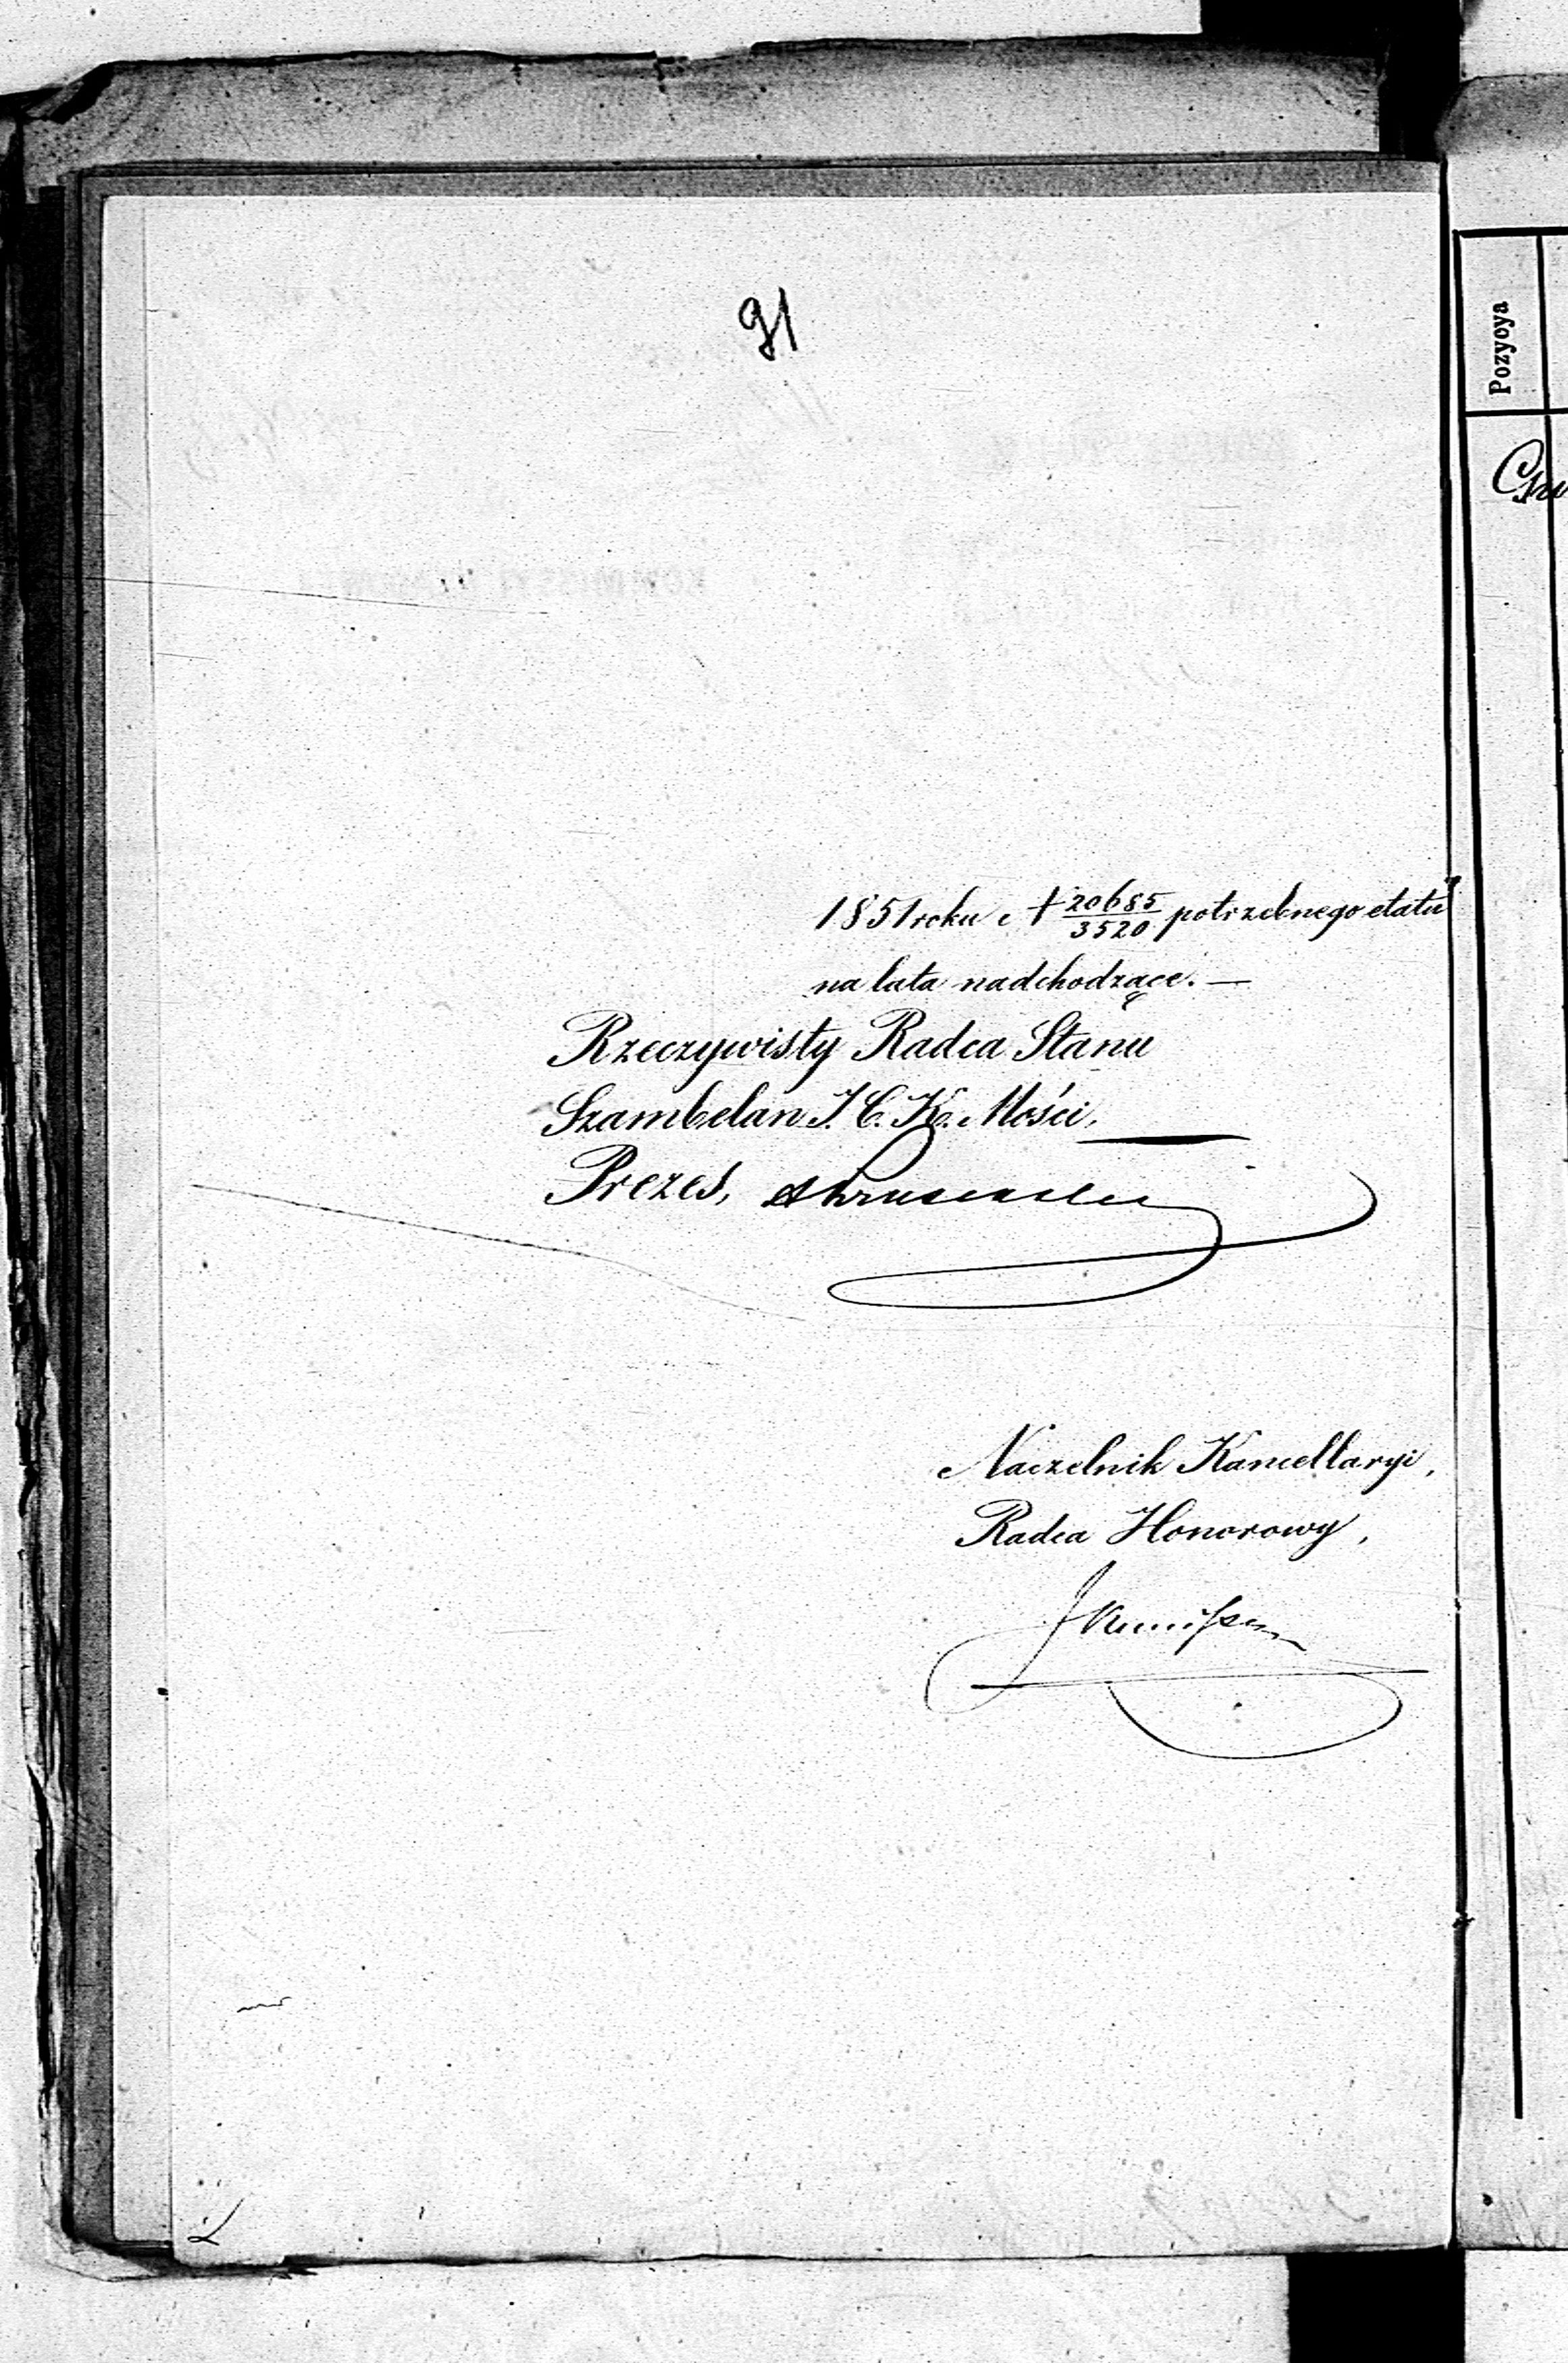 91
1851 roku N 20685/3520 potrzebnego etatu
na lata nadchodzące. —
Rzeczywisty Radca Stanu
Szambelan J. C. K. Mości,
Prezes,
Naczelnik Kancellaryi,
Radca Honorowy,
Pozycya